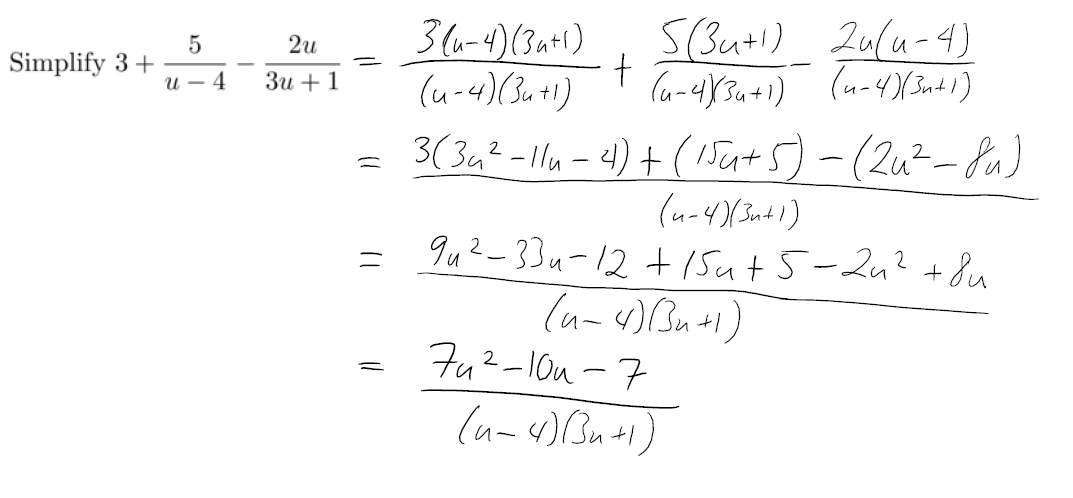 Simplify 3 + \frac{5}{u-4} - \frac{2u}{3u+1} = \frac{3(u-4)(3u+1)}{(u-4)(3u+1)} + \frac{5(3u+1)}{(u-4)(3u+1)} - \frac{2u(u-4)}{(u-4)(3u+1)}
= \frac{3(3u^2-11u-4)+(15u+5)-(2u^2-8u)}{(u-4)(3u+1)}
= \frac{9u^2-33u-12+15u+5-2u^2+8u}{(u-4)(3u+1)}
= \frac{7u^2-10u-7}{(u-4)(3u+1)}